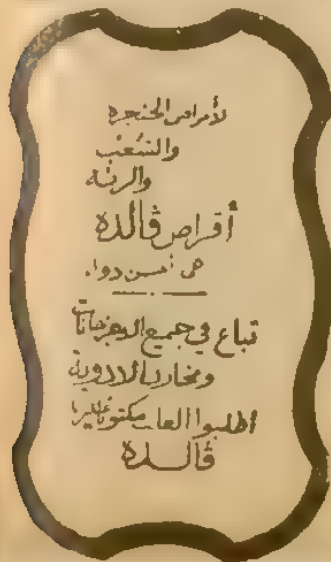 لأمراض الحنجرة
والشعب
والرئة
أقراص ڤالدة
هى أحسن دواء
تباع في جميع الاجزخانات
ومخازن الادوية
اطلبوا العلب مكتوبا عليها
ڤالدة